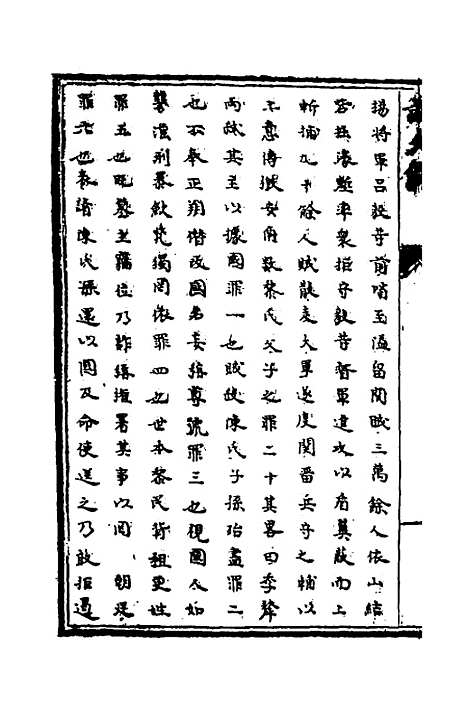 揚將軍呂毅等前哨至溫留関賊三萬餘人依山結
寨抵濠塹率衆拒守毅等督軍進攻以盾冀蔽而上
斬捕九十餘人賊散走大軍遂度関晋兵守之輔以
上意傳撫安南数黎氏父子之罪二十其畧曰季犛
両弑其主以據國罪一也賊殺陳氏子孫殆盡罪二
也不奉正朔僭改國名妄稱尊號罪三也視國人如
讐淫刑暴歛茕獨罔依罪四也世本黎民背祖更姓
罪五也既簒主竊位乃詐稱權署其事以罔　朝廷
罪六也表請陳氏孫還以國及命使送之乃敢拒遏